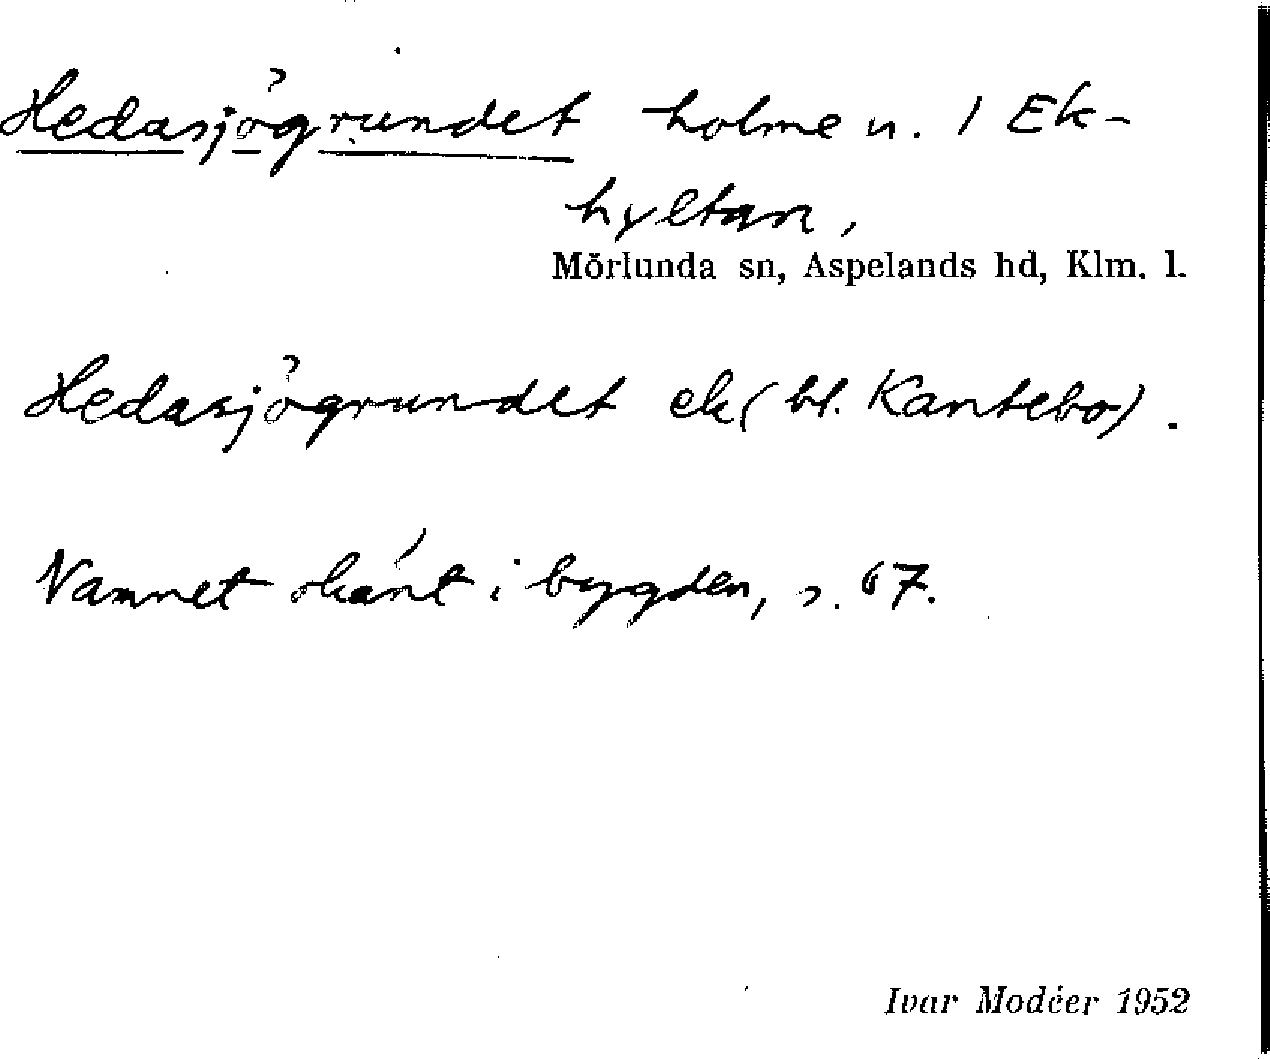 Hedasjögrundet holme u. 1 Ek-
hyltan,
Mörlunda sn, Aspelands hd, Klm. l.
Hedasjögrundet ek (bl. Kantebo).
Namnet känt i bygden, s. 67.
Ivar Modéer 1952